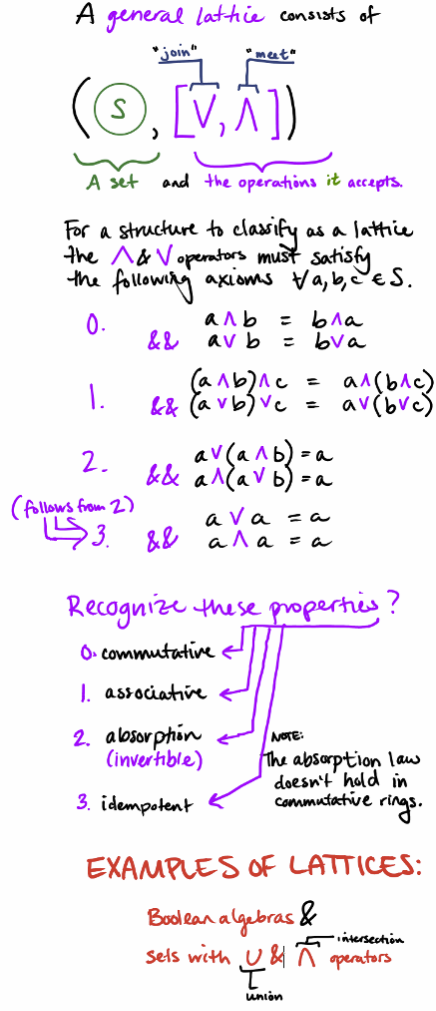 A general lattice consists of
"join" "meet"
(S, [∨, ∧])
A set and the operations it accepts.
For a structure to classify as a lattice
the ∧ & ∨ operators must satisfy
the following axioms ∀a,b,c ∈ S.
0. a ∧ b = b ∧ a
&& a ∨ b = b ∨ a
1. (a ∧ b) ∧ c = a ∧ (b ∧ c)
&& (a ∨ b) ∨ c = a ∨ (b ∨ c)
2. a ∨ (a ∧ b) = a
&& a ∧ (a ∨ b) = a
(follows from 2)
3. a ∨ a = a
&& a ∧ a = a
Recognize these properties?
0. commutative
1. associative
2. absorption
(invertible)
3. idempotent
NOTE:
The absorption law
doesn't hold in
commutative rings.
EXAMPLES OF LATTICES:
Boolean algebras &
sets with ∪ & ∩ operators
intersection
union